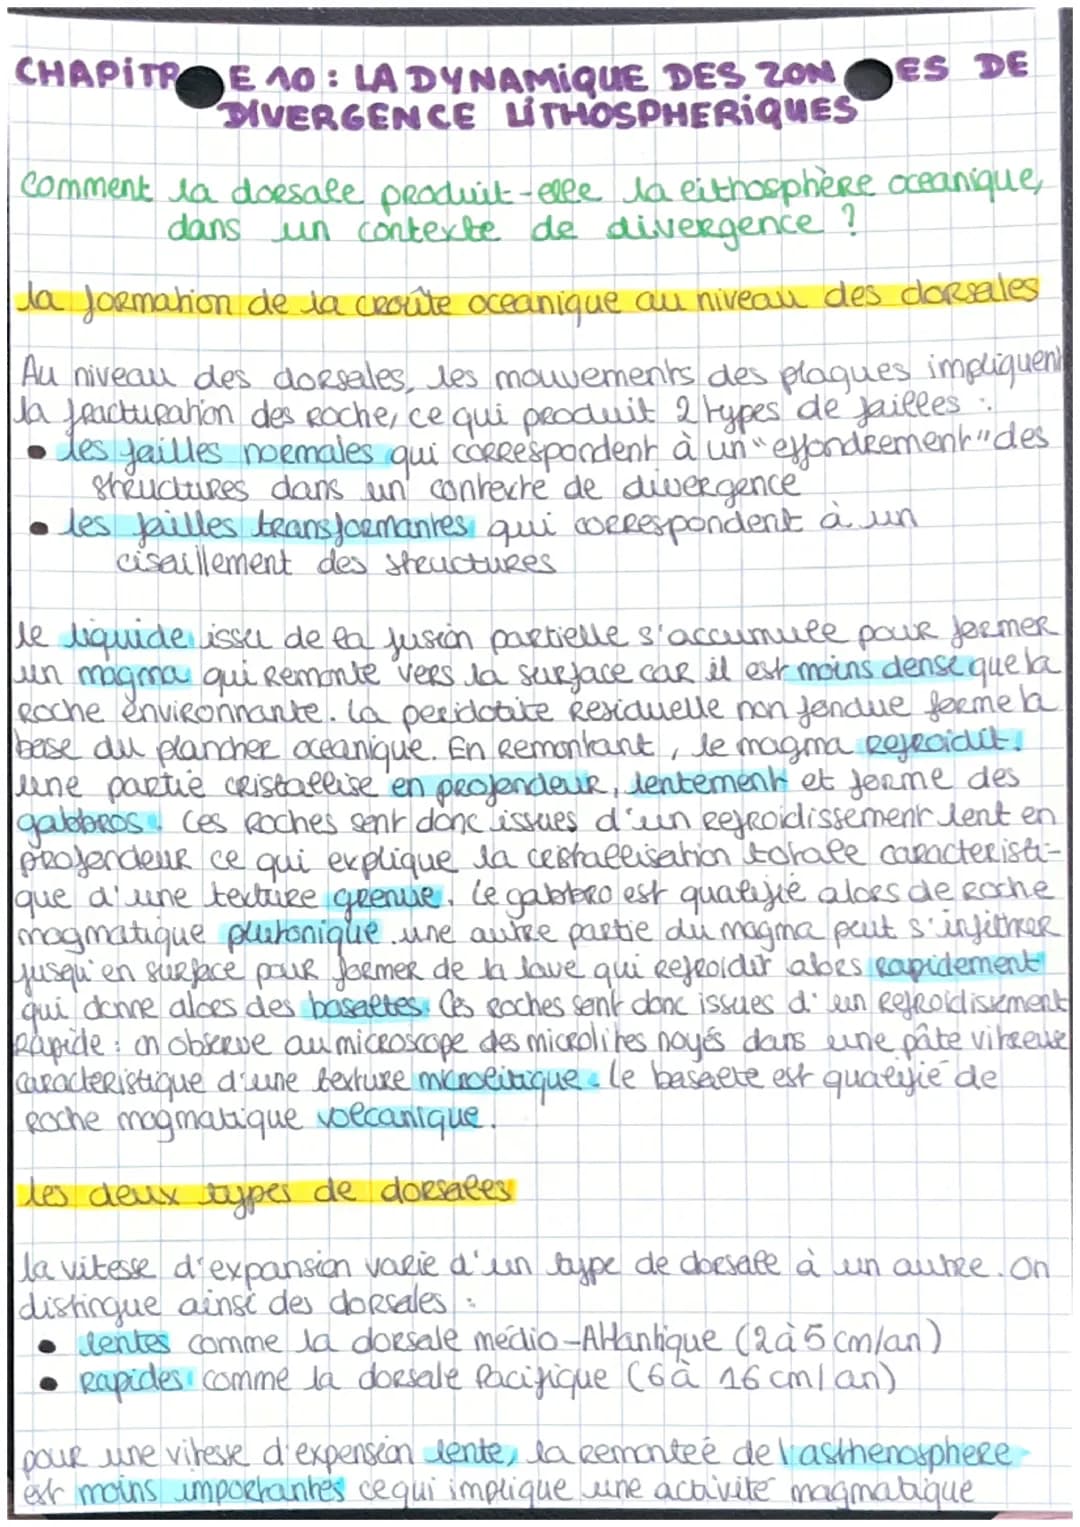 CHAPITR E 10 : LA DYNAMIQUE DES ZON ES DE
DIVERGENCE LITHOSPHERIQUES
Comment la dorsale produit-elle la lithosphère oceanique,
dans un contexte de divergence ?
la formation de la croûte oceanique au niveau des dorsales
Au niveau des dorsales, les mouvements des plaques impliquent
la fracturation des roche, ce qui produit 2 types de failles :
• les failles normales qui correspondent à un "effondrement" des
structures dans un contexte de divergence
• les failles transformantes qui correspondent à un
cisaillement des structures
le liquide issu de la fusion partielle s'accumule pour former
un magma qui remonte vers la surface car il est moins dense que la
roche environnante. la peridotite residuelle non fondue forme la
base du plancher oceanique. En remontant, le magma refroidit.
une partie cristallise en profondeur, lentement et forme des
gabbros. Ces roches sont donc issues d'un refroidissement lent en
profondeur ce qui explique la cristallisation totale caracteristi-
que d'une texture grenue. le gabbro est qualifié alors de roche
magmatique plutonique. une autre partie du magma peut s'infiltrer
jusqu'en surface pour former de la lave qui refroidit alors rapidement
qui donne alors des basaltes. Ces roches sont donc issues d'un refroidissement
rapide : on observe au microscope des microlites noyés dans une pâte vitreuse
caractéristique d'une texture microlitique. le basalte est qualifié de
roche magmatique volcanique.
les deux types de dorsales
la vitesse d'expansion varie d'un type de dorsale à un autre. On
distingue ainsi des dorsales :
• lentes comme la dorsale médio-Atlantique (2 à 5 cm/an)
• rapides comme la dorsale Pacifique (6 à 16 cm/an)
pour une vitesse d'expension lente, la remonteé de l'asthenosphere
est moins importantes ce qui implique une activité magmatique